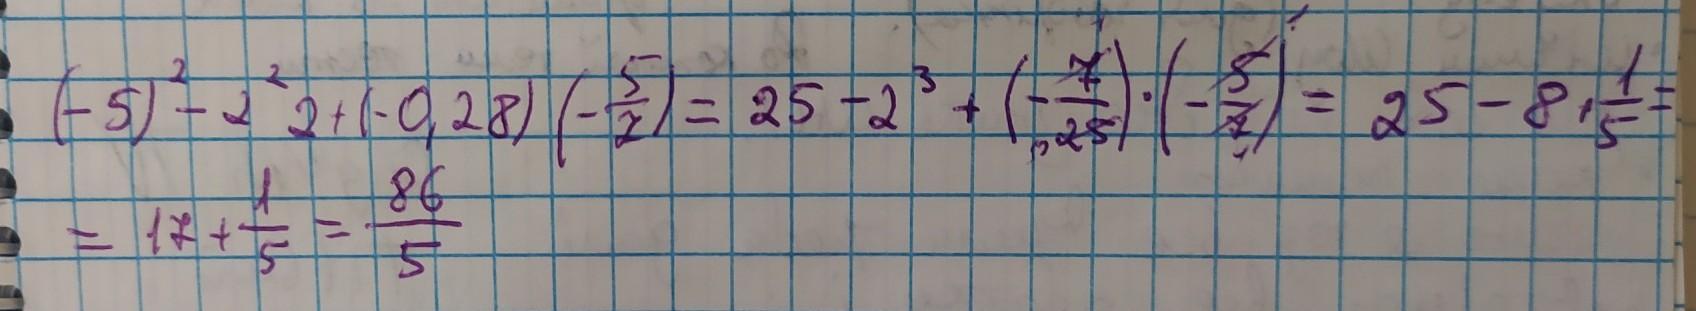 (-5)² - 2² 2 + (-0,28) (-5/7) = 25 - 2³ + (-7/25) · (-5/7) = 25 - 8 + 1/5 =
= 17 + 1/5 = 86/5